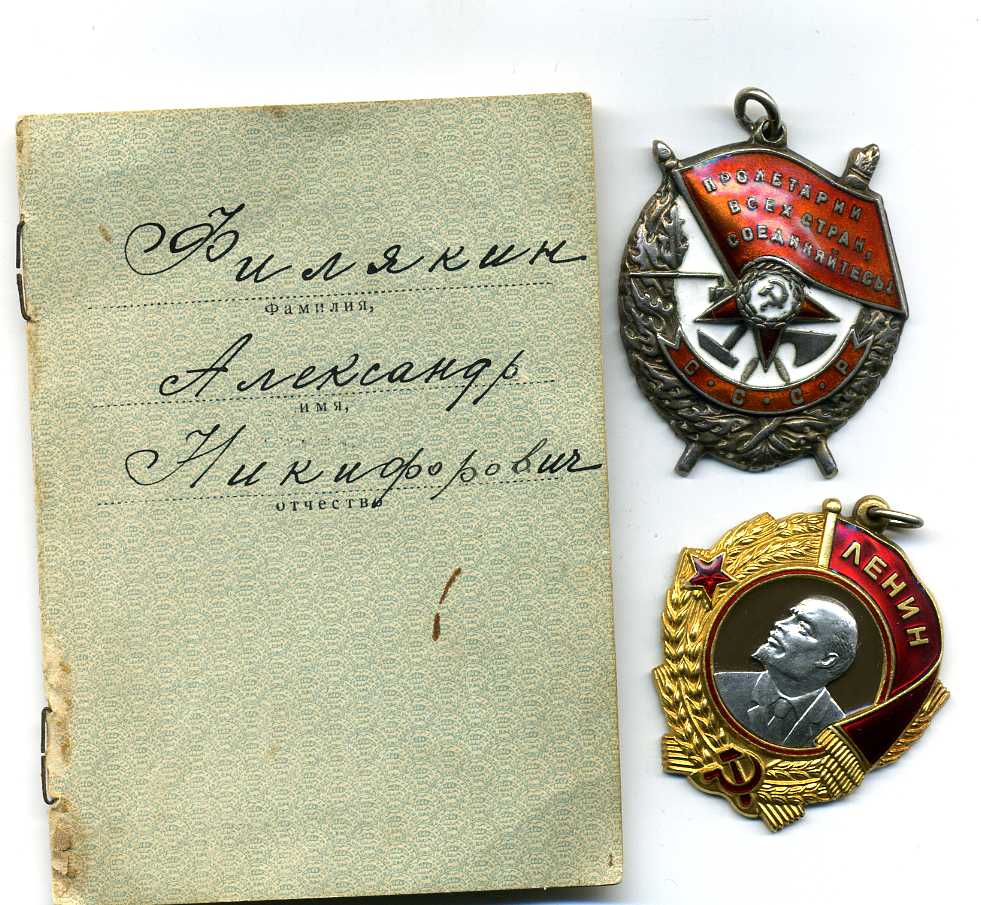 Филякин
Фамилия,
Александр
имя,
Никифорович
отчество
ПРОЛЕТАРИИ
ВСЕХ СТРАН,
СОЕДИНЯЙТЕСЬ!
С·С·С·Р
ЛЕНИН